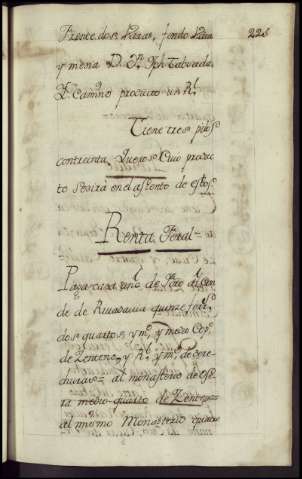 225
Frente dos Varas, fondo Vara
y media D.n Jph Taboada
D.l Camino producto un R.l
Tiene tres pies
con treinta Quesos Cuio produc
to se dira en el asiento de estos
Renta Foral
Paga cada año de foro al Conde
de de Rivadavia quinze ferr.s
dos quartos y m.o y medio Cop.o
de Zenteno, y R.l y m.o de dere
churas al monasterio de Ose
ra medio quarto de Zenteno
al mismo Monasterio